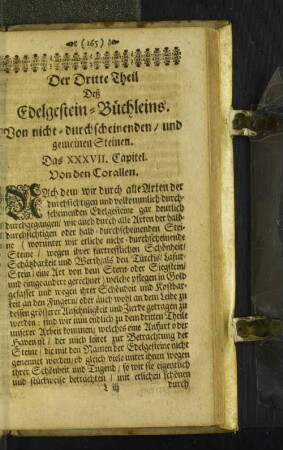 (165)
Der Dritte Theil
Deß
Edelgestein-Büchleins.
Von nicht-durchscheinenden/ und
gemeinen Steinen.
Das XXXVII. Capitel.
Von den Corallen.
NAch dem wir durch alle Arten der
durchsichtigen und vollkommlich durch-
scheinenden Edelgesteine gar deutlich
durchgegangen/ wie auch durch alle Arten der halb-
durchsichtigen oder halb-durchscheinenden Stei-
ne ( worunter wir etliche nicht-durchscheinende
Steine/ wegen ihrer fürtrefflichen Schönheit/
Schätzbarkeit und Werthalls den Türckis/ Lasur-
Stein/ eine Art von dem Stern oder Siegstein/
und einige andere gerechnet) welche pflegen in Gold
gefasset und wegen ihrer Schönheit und Kostbar-
keit an den Fingern/ oder auch wohl an dem Leibe zu
dessen grösserer Ansehnligkeit und Zierde getragen zu
werden: sind wir nun endlich zu dem dritten Theile
unserer Arbeit kommen/ welches eine Anfurt oder
Haven ist/ der mich leitet zur Betrachtung der
Steine/ die mit den Namen der Edelgesteine nicht
genennet werden/ ob gleich viele unter ihnen wegen
ihrer Schönheit und Tugend/ so wir sie eigentlich
und stückweise betrachten/ mit etlichen schönen
L iij durch